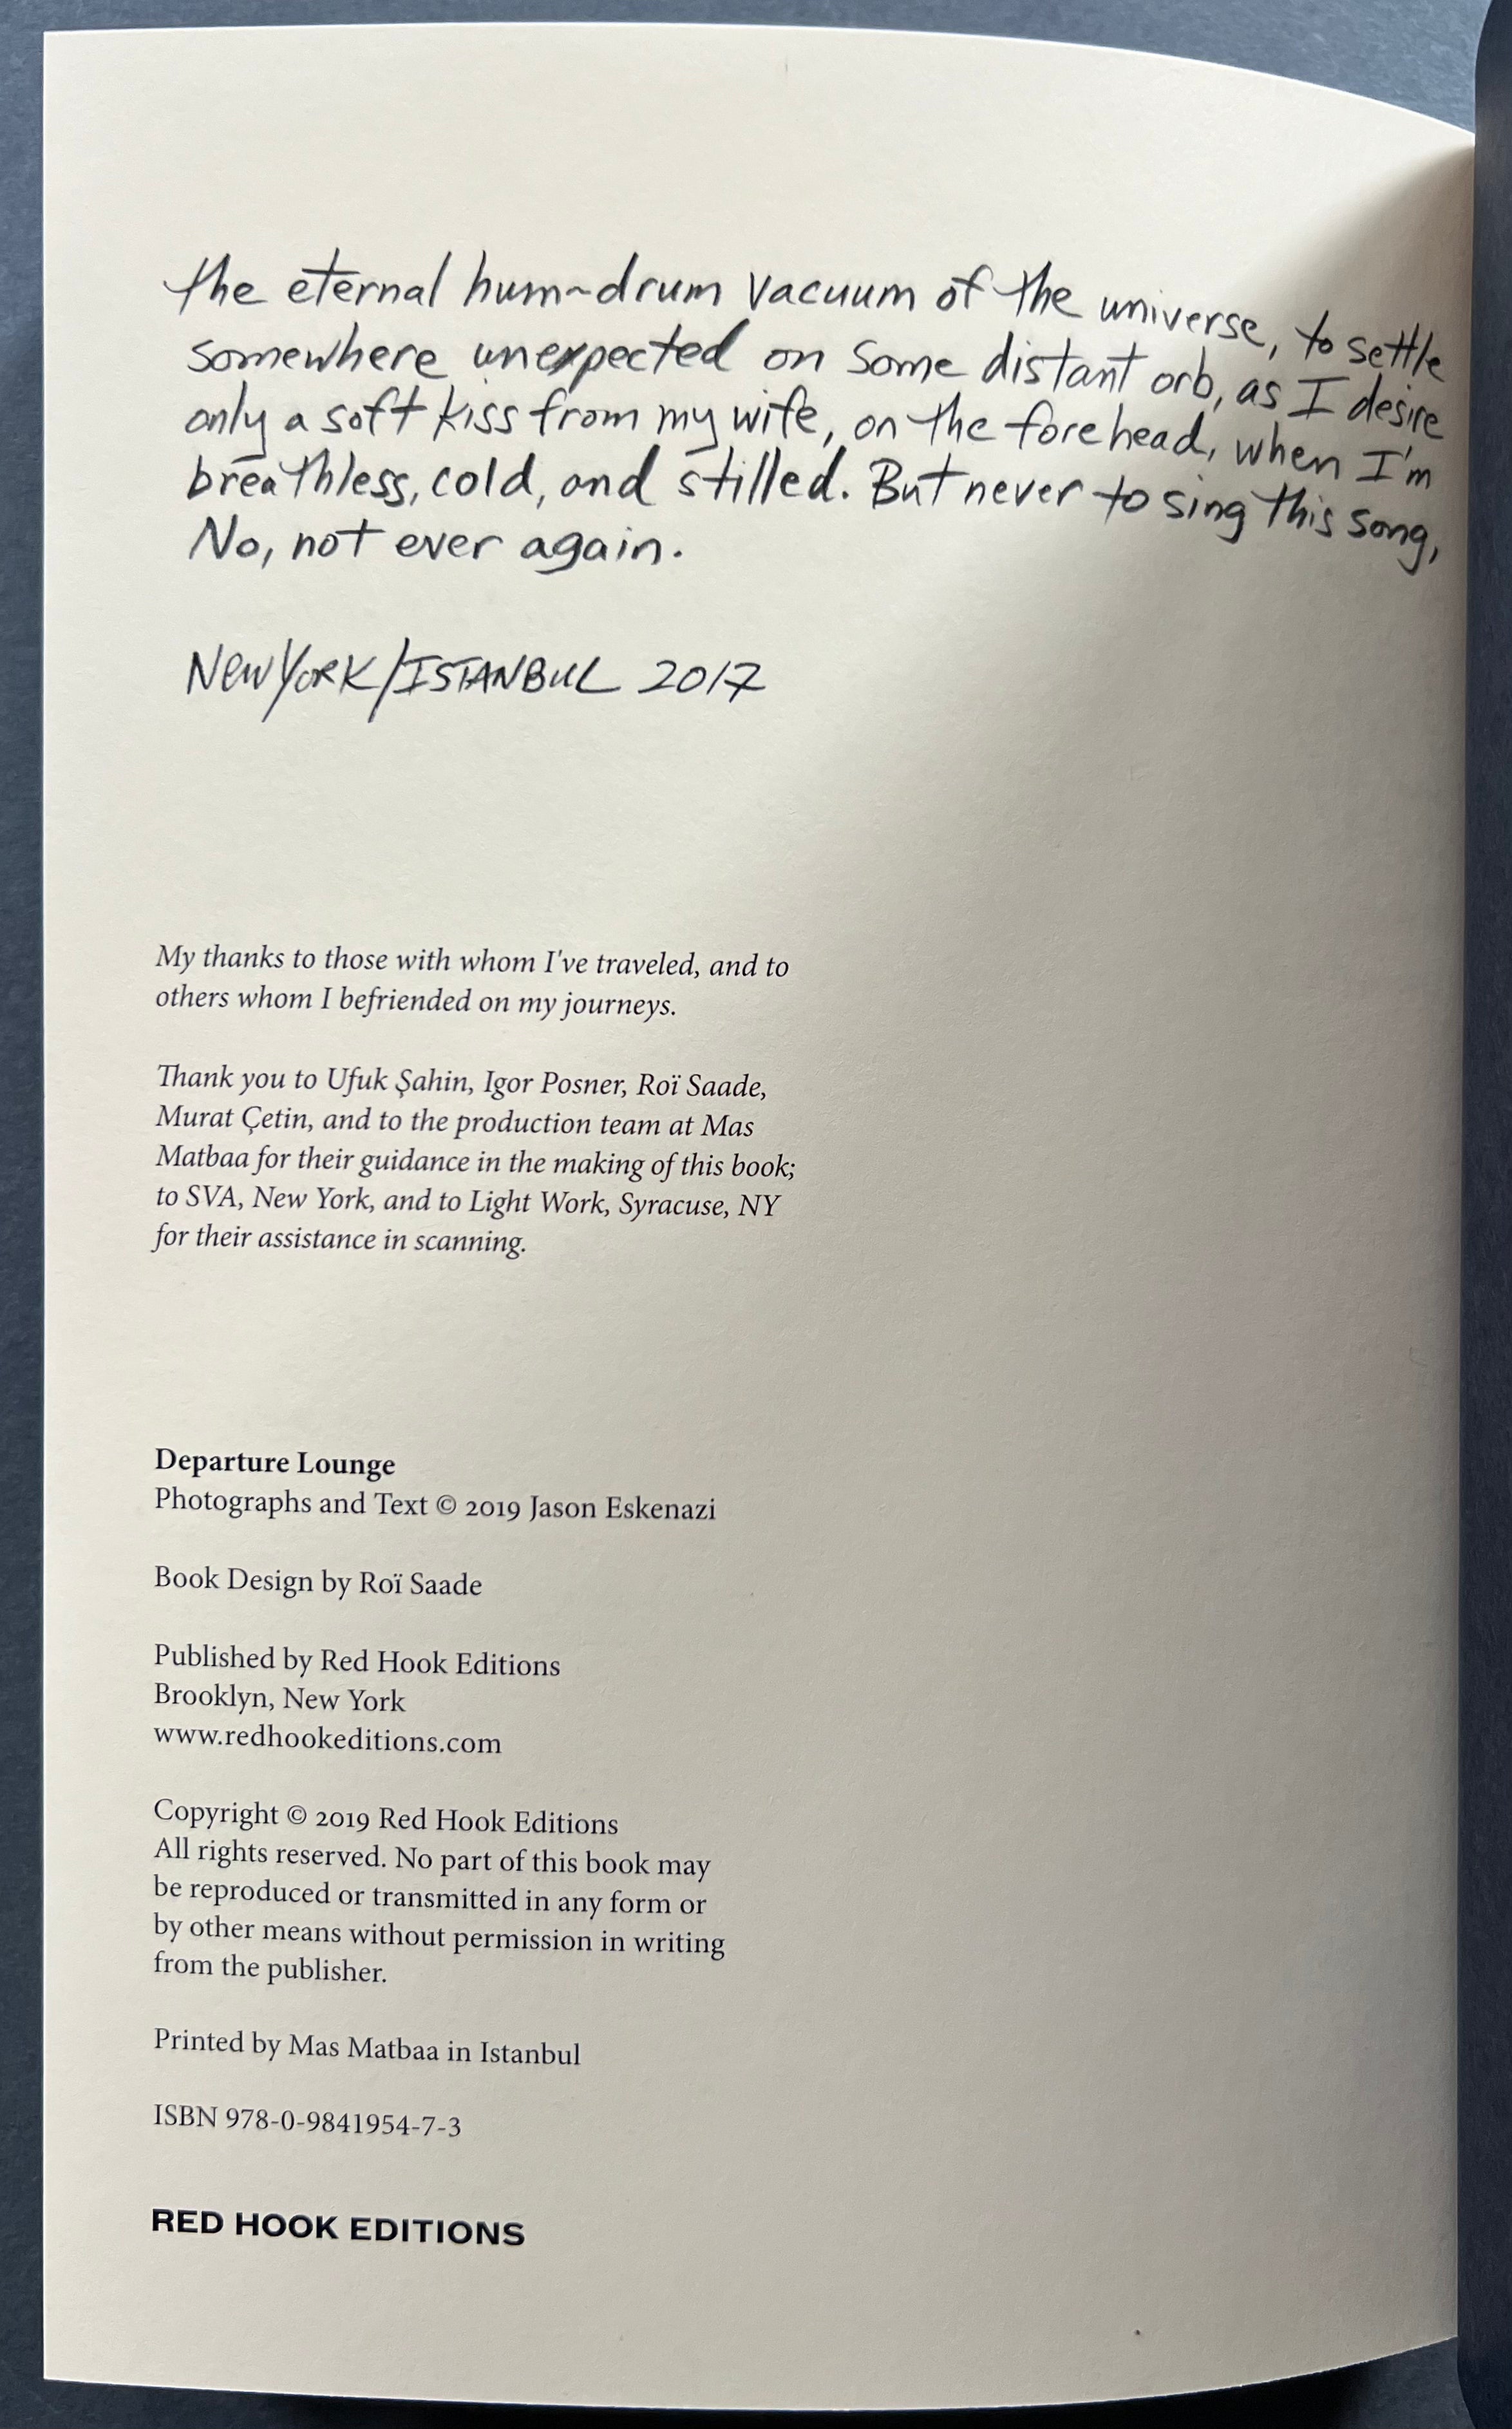 the eternal hum-drum vacuum of the universe, to settle
somewhere unexpected on some distant orb, as I desire
only a soft kiss from my wife, on the forehead, when I'm
breathless, cold, and stilled. But never to sing this song,
No, not ever again.
NEW YORK/ISTANBUL 2017
My thanks to those with whom I've traveled, and to
others whom I befriended on my journeys.
Thank you to Ufuk Şahin, Igor Posner, Roï Saade,
Murat Çetin, and to the production team at Mas
Matbaa for their guidance in the making of this book;
to SVA, New York, and to Light Work, Syracuse, NY
for their assistance in scanning.
Departure Lounge
Photographs and Text © 2019 Jason Eskenazi
Book Design by Roï Saade
Published by Red Hook Editions
Brooklyn, New York
www.redhookeditions.com
Copyright © 2019 Red Hook Editions
All rights reserved. No part of this book may
be reproduced or transmitted in any form or
by other means without permission in writing
from the publisher.
Printed by Mas Matbaa in Istanbul
ISBN 978-0-9841954-7-3
RED HOOK EDITIONS